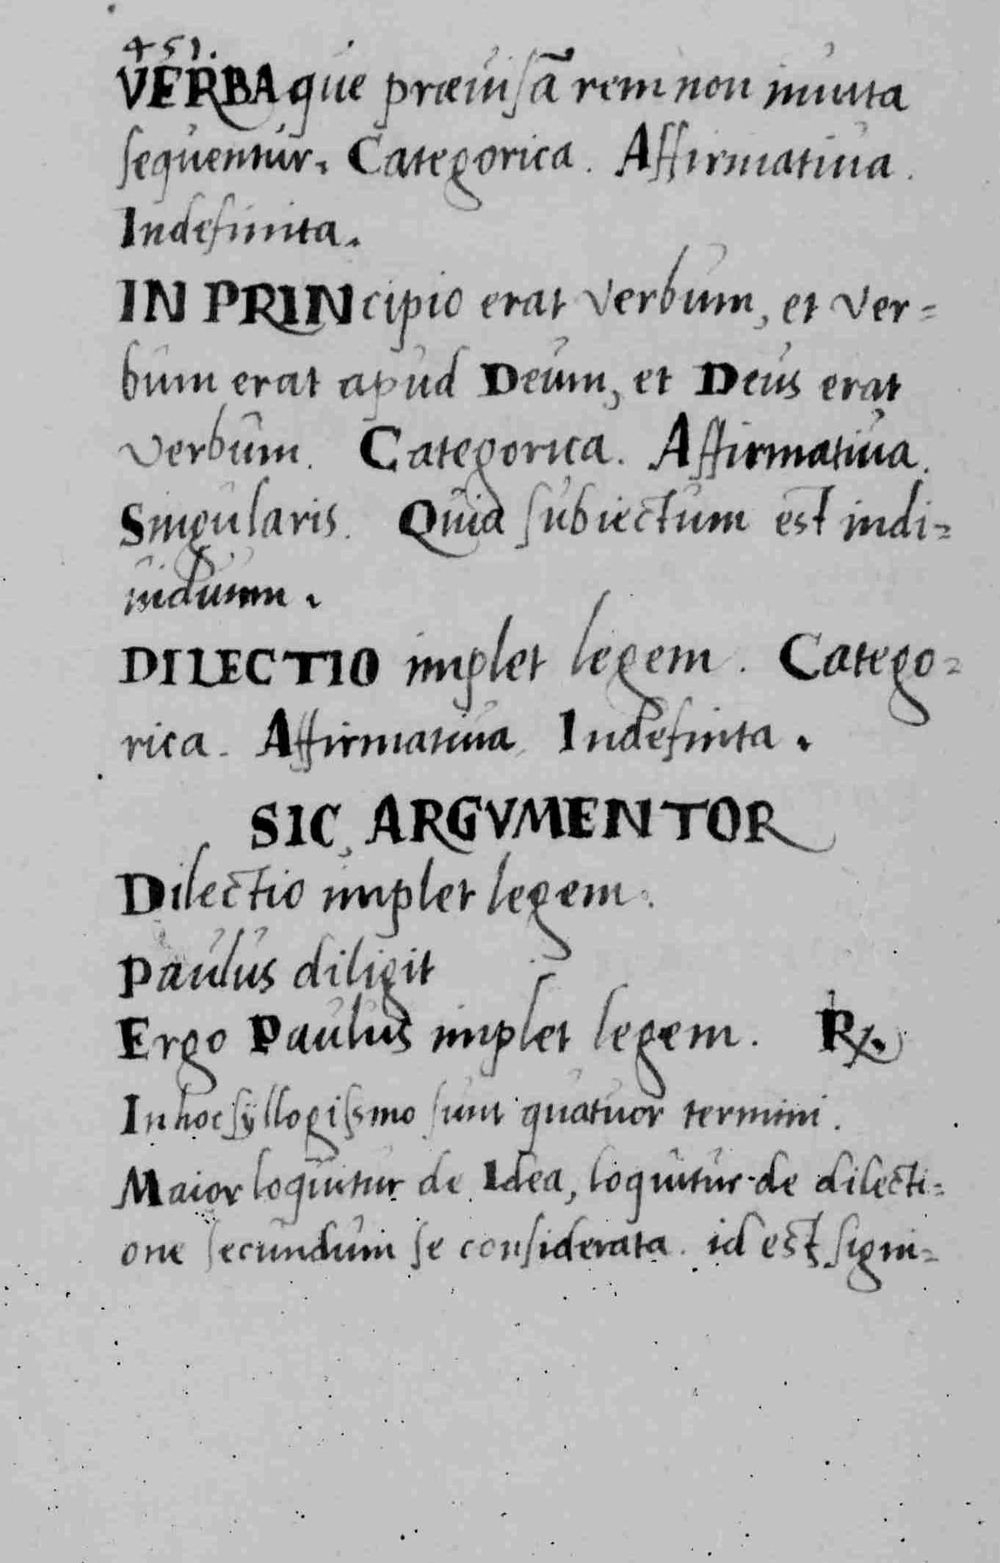 451.
VERBAque præuisā rem non inuita
sequentur. Categorica. Affirmatiua.
Indefinita.
IN PRINcipio erat verbum, et ver=
bum erat apud Deum, et Deus erat
verbum. Categorica. Affirmatiua.
Singularis. Quia subiectum est indi=
uiduum.
DILECTIO implet legem. Catego=
rica. Affirmatiua Indefinita.
SIC ARGVMENTOR
Dilectio implet legem.
Paulus diligit
Ergo Paulus implet legem. ℞.
In hoc syllogismo sunt quatuor termini.
Maior loquitur de Idea, loquitur de dilecti=
one secundum se considerata. id est signi=